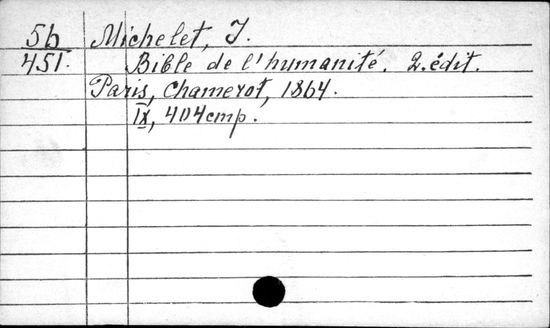 5b Michelet, J.
451. Bible de l'humanité. 2.édit.
Paris, Chamerot, 1864.
IX, 404 cmp.